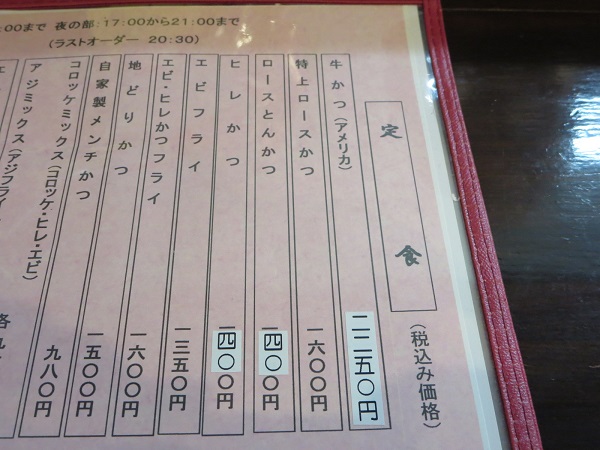 :00まで 夜の部:17:00から21:00まで
(ラストオーダー 20:30)
定食
(税込み価格)
牛かつ(アメリカ) 二二五〇円
特上ロースかつ 一六〇〇円
ロースとんかつ 一四〇〇円
ヒレかつ 一四〇〇円
エビフライ 一三五〇円
エビ・ヒレかつフライ 一六〇〇円
地どりかつ 一五〇〇円
自家製メンチかつ 九八〇円
コロッケミックス(コロッケ・ヒレ・エビ)
アジミックス(アジフライ